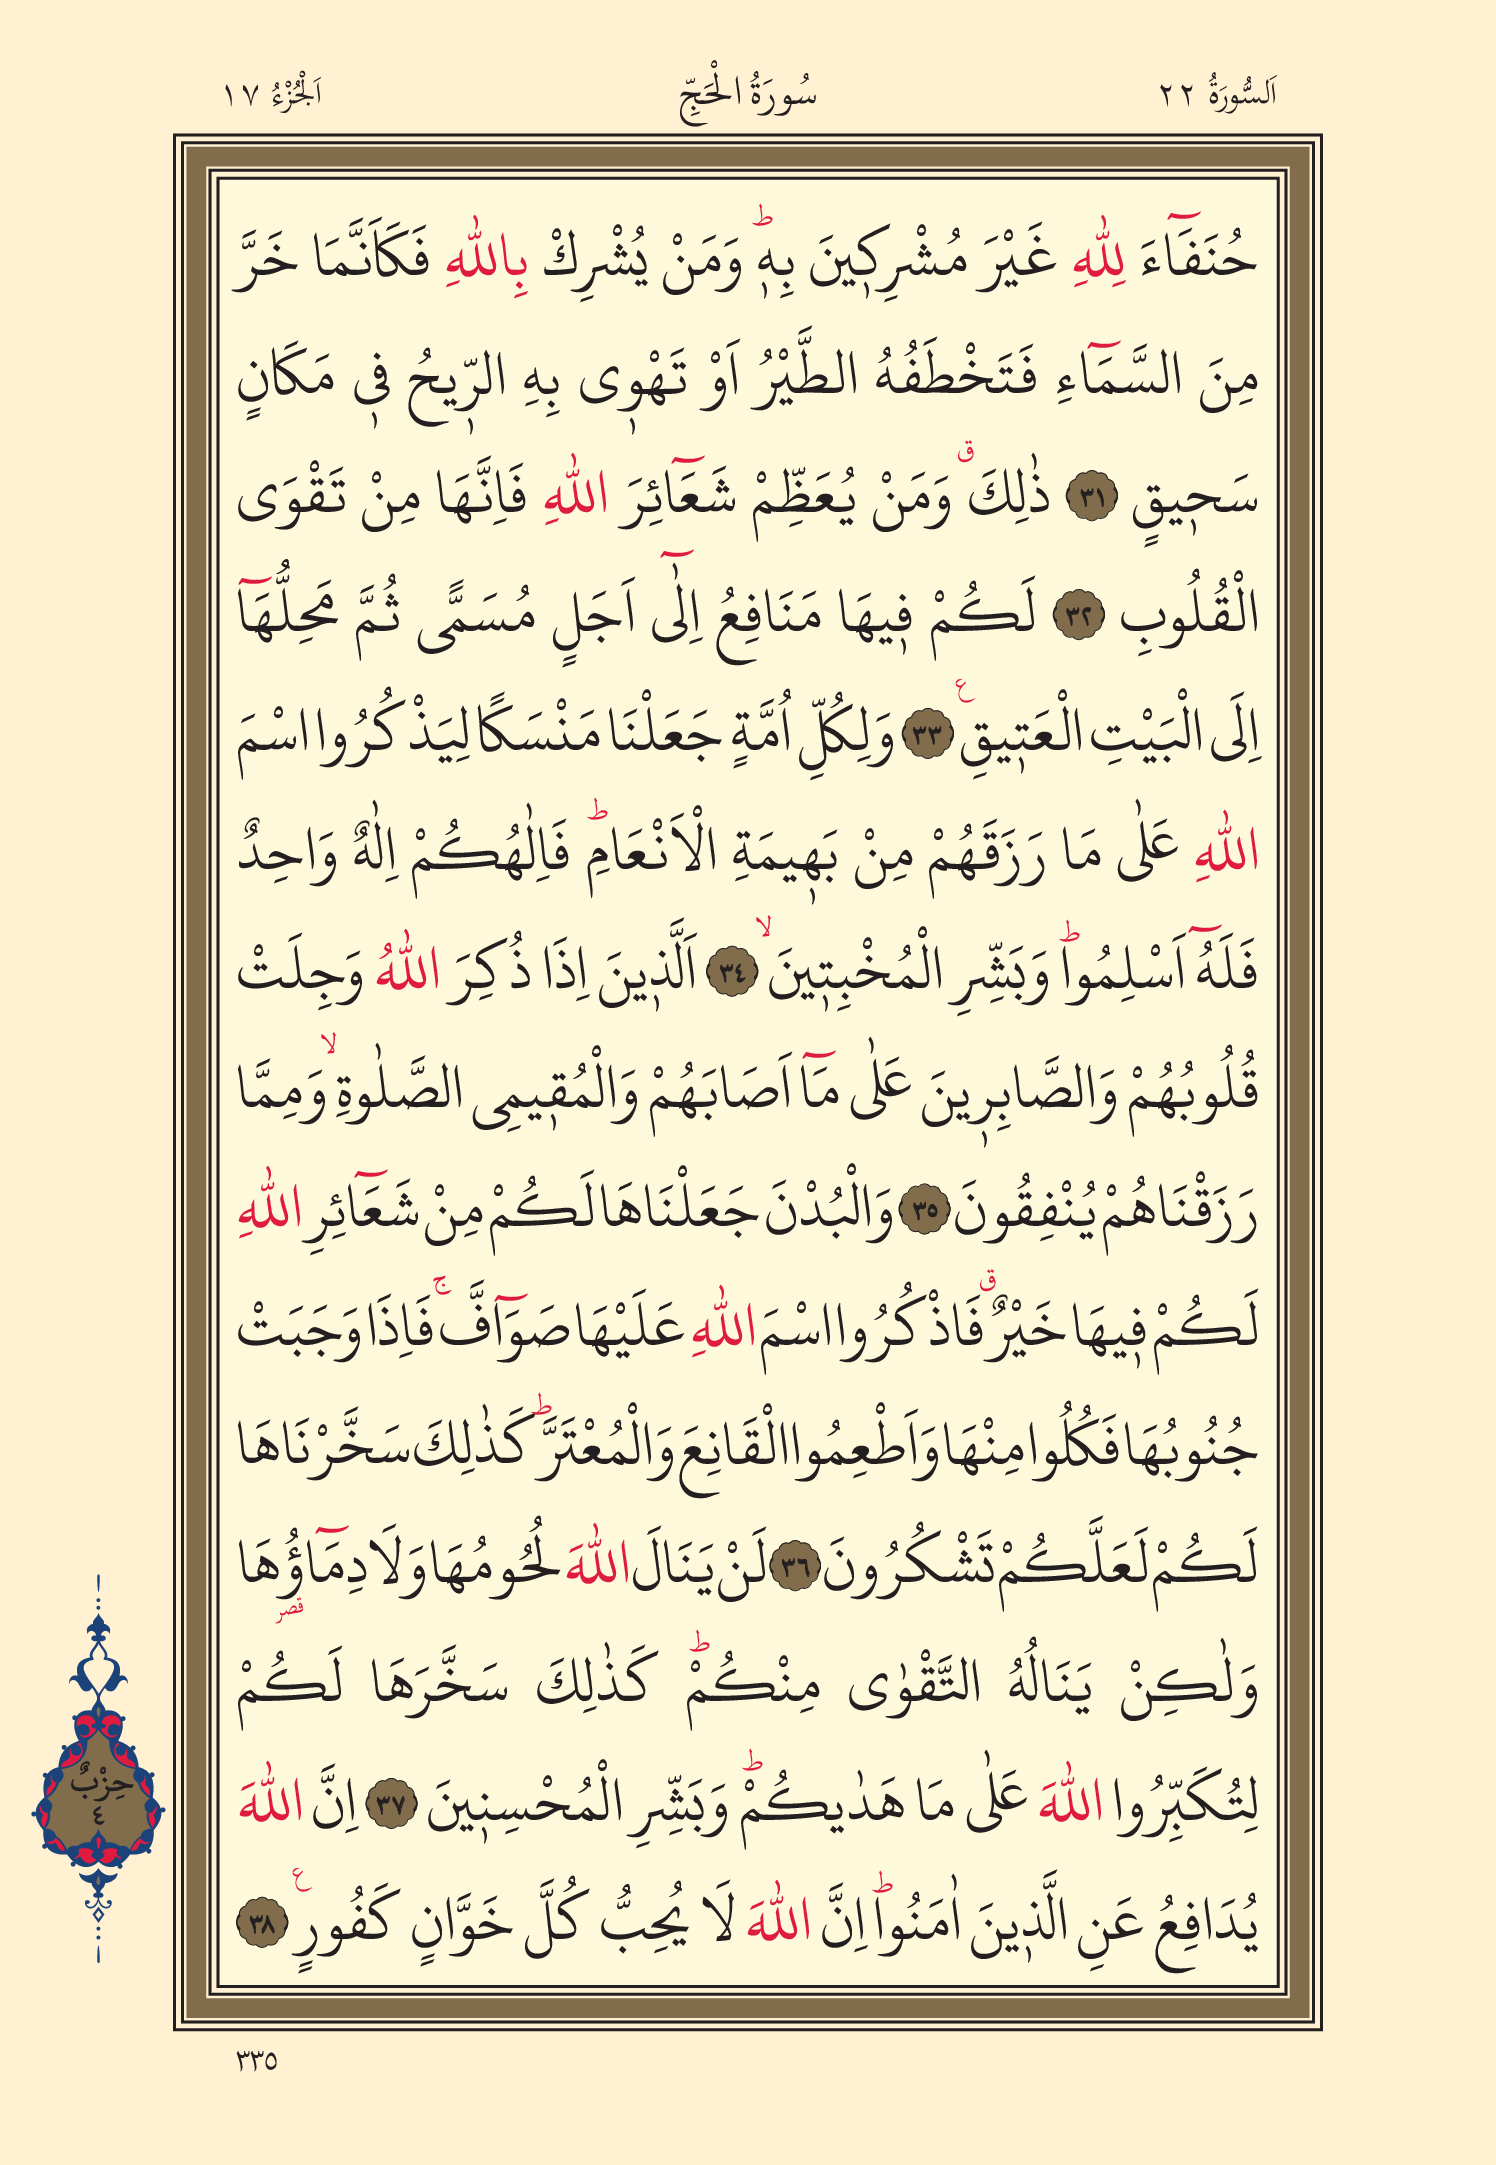 اَلسُّورَةُ ٢٢ سُورَةُ الْحَجِّ اَلْجُزْءُ ١٧
حُنَفَٓاءَ لِلّٰهِ غَيْرَ مُشْرِك۪ينَ بِه۪ۜ وَمَنْ يُشْرِكْ بِاللّٰهِ فَكَاَنَّمَا خَرَّ
مِنَ السَّمَٓاءِ فَتَخْطَفُهُ الطَّيْرُ اَوْ تَهْو۪ى بِهِ الرّ۪يحُ ف۪ى مَكَانٍ
سَح۪يقٍ ﴿٣١﴾ ذٰلِكَۗ وَمَنْ يُعَظِّمْ شَعَٓائِرَ اللّٰهِ فَاِنَّهَا مِنْ تَقْوَى
الْقُلُوبِ ﴿٣٢﴾ لَكُمْ ف۪يهَا مَنَافِعُ اِلٰٓى اَجَلٍ مُسَمًّى ثُمَّ مَحِلُّهَٓا
اِلَى الْبَيْتِ الْعَت۪يقِ۟ ﴿٣٣﴾ وَلِكُلِّ اُمَّةٍ جَعَلْنَا مَنْسَكًا لِيَذْكُرُوا اسْمَ
اللّٰهِ عَلٰى مَا رَزَقَهُمْ مِنْ بَه۪يمَةِ الْاَنْعَامِۜ فَاِلٰهُكُمْ اِلٰهٌ وَاحِدٌ
فَلَهُٓ اَسْلِمُواۜ وَبَشِّرِ الْمُخْبِت۪ينَۙ ﴿٣٤﴾ اَلَّذ۪ينَ اِذَا ذُكِرَ اللّٰهُ وَجِلَتْ
قُلُوبُهُمْ وَالصَّابِر۪ينَ عَلٰى مَٓا اَصَابَهُمْ وَالْمُق۪يمِى الصَّلٰوةِۙ وَمِمَّا
رَزَقْنَاهُمْ يُنْفِقُونَ ﴿٣٥﴾ وَالْبُدْنَ جَعَلْنَاهَا لَكُمْ مِنْ شَعَٓائِرِ اللّٰهِ
لَكُمْ ف۪يهَا خَيْرٌۗ فَاذْكُرُوا اسْمَ اللّٰهِ عَلَيْهَا صَوَٓافَّۚ فَاِذَا وَجَبَتْ
جُنُوبُهَا فَكُلُوا مِنْهَا وَاَطْعِمُوا الْقَانِعَ وَالْمُعْتَرَّۜ كَذٰلِكَ سَخَّرْنَاهَا
لَكُمْ لَعَلَّكُمْ تَشْكُرُونَ ﴿٣٦﴾ لَنْ يَنَالَ اللّٰهَ لُحُومُهَا وَلَا دِمَٓاؤُ۬هَا
قصر
وَلٰكِنْ يَنَالُهُ التَّقْوٰى مِنْكُمْۜ كَذٰلِكَ سَخَّرَهَا لَكُمْ
لِتُكَبِّرُوا اللّٰهَ عَلٰى مَا هَدٰيكُمْۜ وَبَشِّرِ الْمُحْسِن۪ينَ ﴿٣٧﴾ اِنَّ اللّٰهَ
يُدَافِعُ عَنِ الَّذ۪ينَ اٰمَنُواۜ اِنَّ اللّٰهَ لَا يُحِبُّ كُلَّ خَوَّانٍ كَفُورٍ۟ ﴿٣٨﴾
حِزْبٌ
٤
٣٣٥